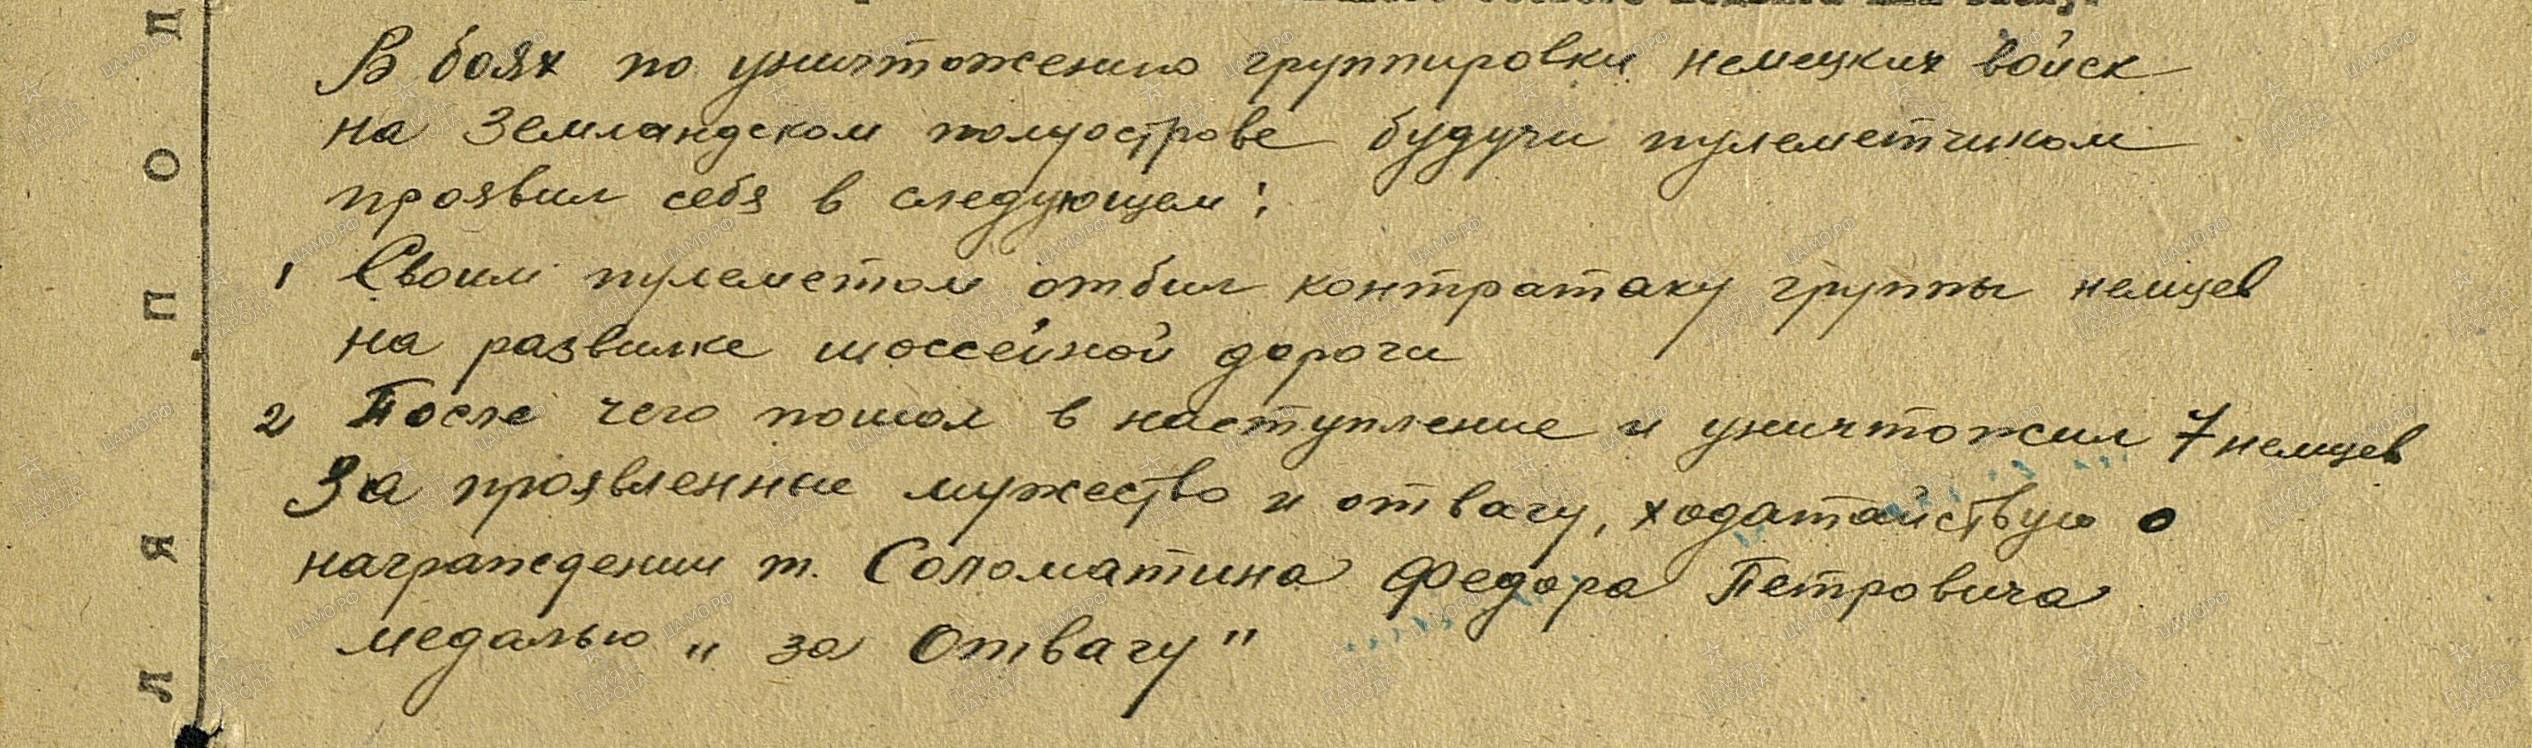 В боях по уничтожению группировки немецких войск
на Земландском полуострове будучи пулеметчиком
проявил себя в следующем:
1 Своим пулеметом отбил контратаку группы немцев
на развилке шоссейной дороги
2 После чего пошол в наступление и уничтожил 7 немцев
За проявленные мужество и отвагу, ходатайствую о
награждении т. Соломатина Федора Петровича
медалью „за Отвагу"
Л
О
П
Я
Л
ЦАМО.РФ
ПАМЯТЬ НАРОДА